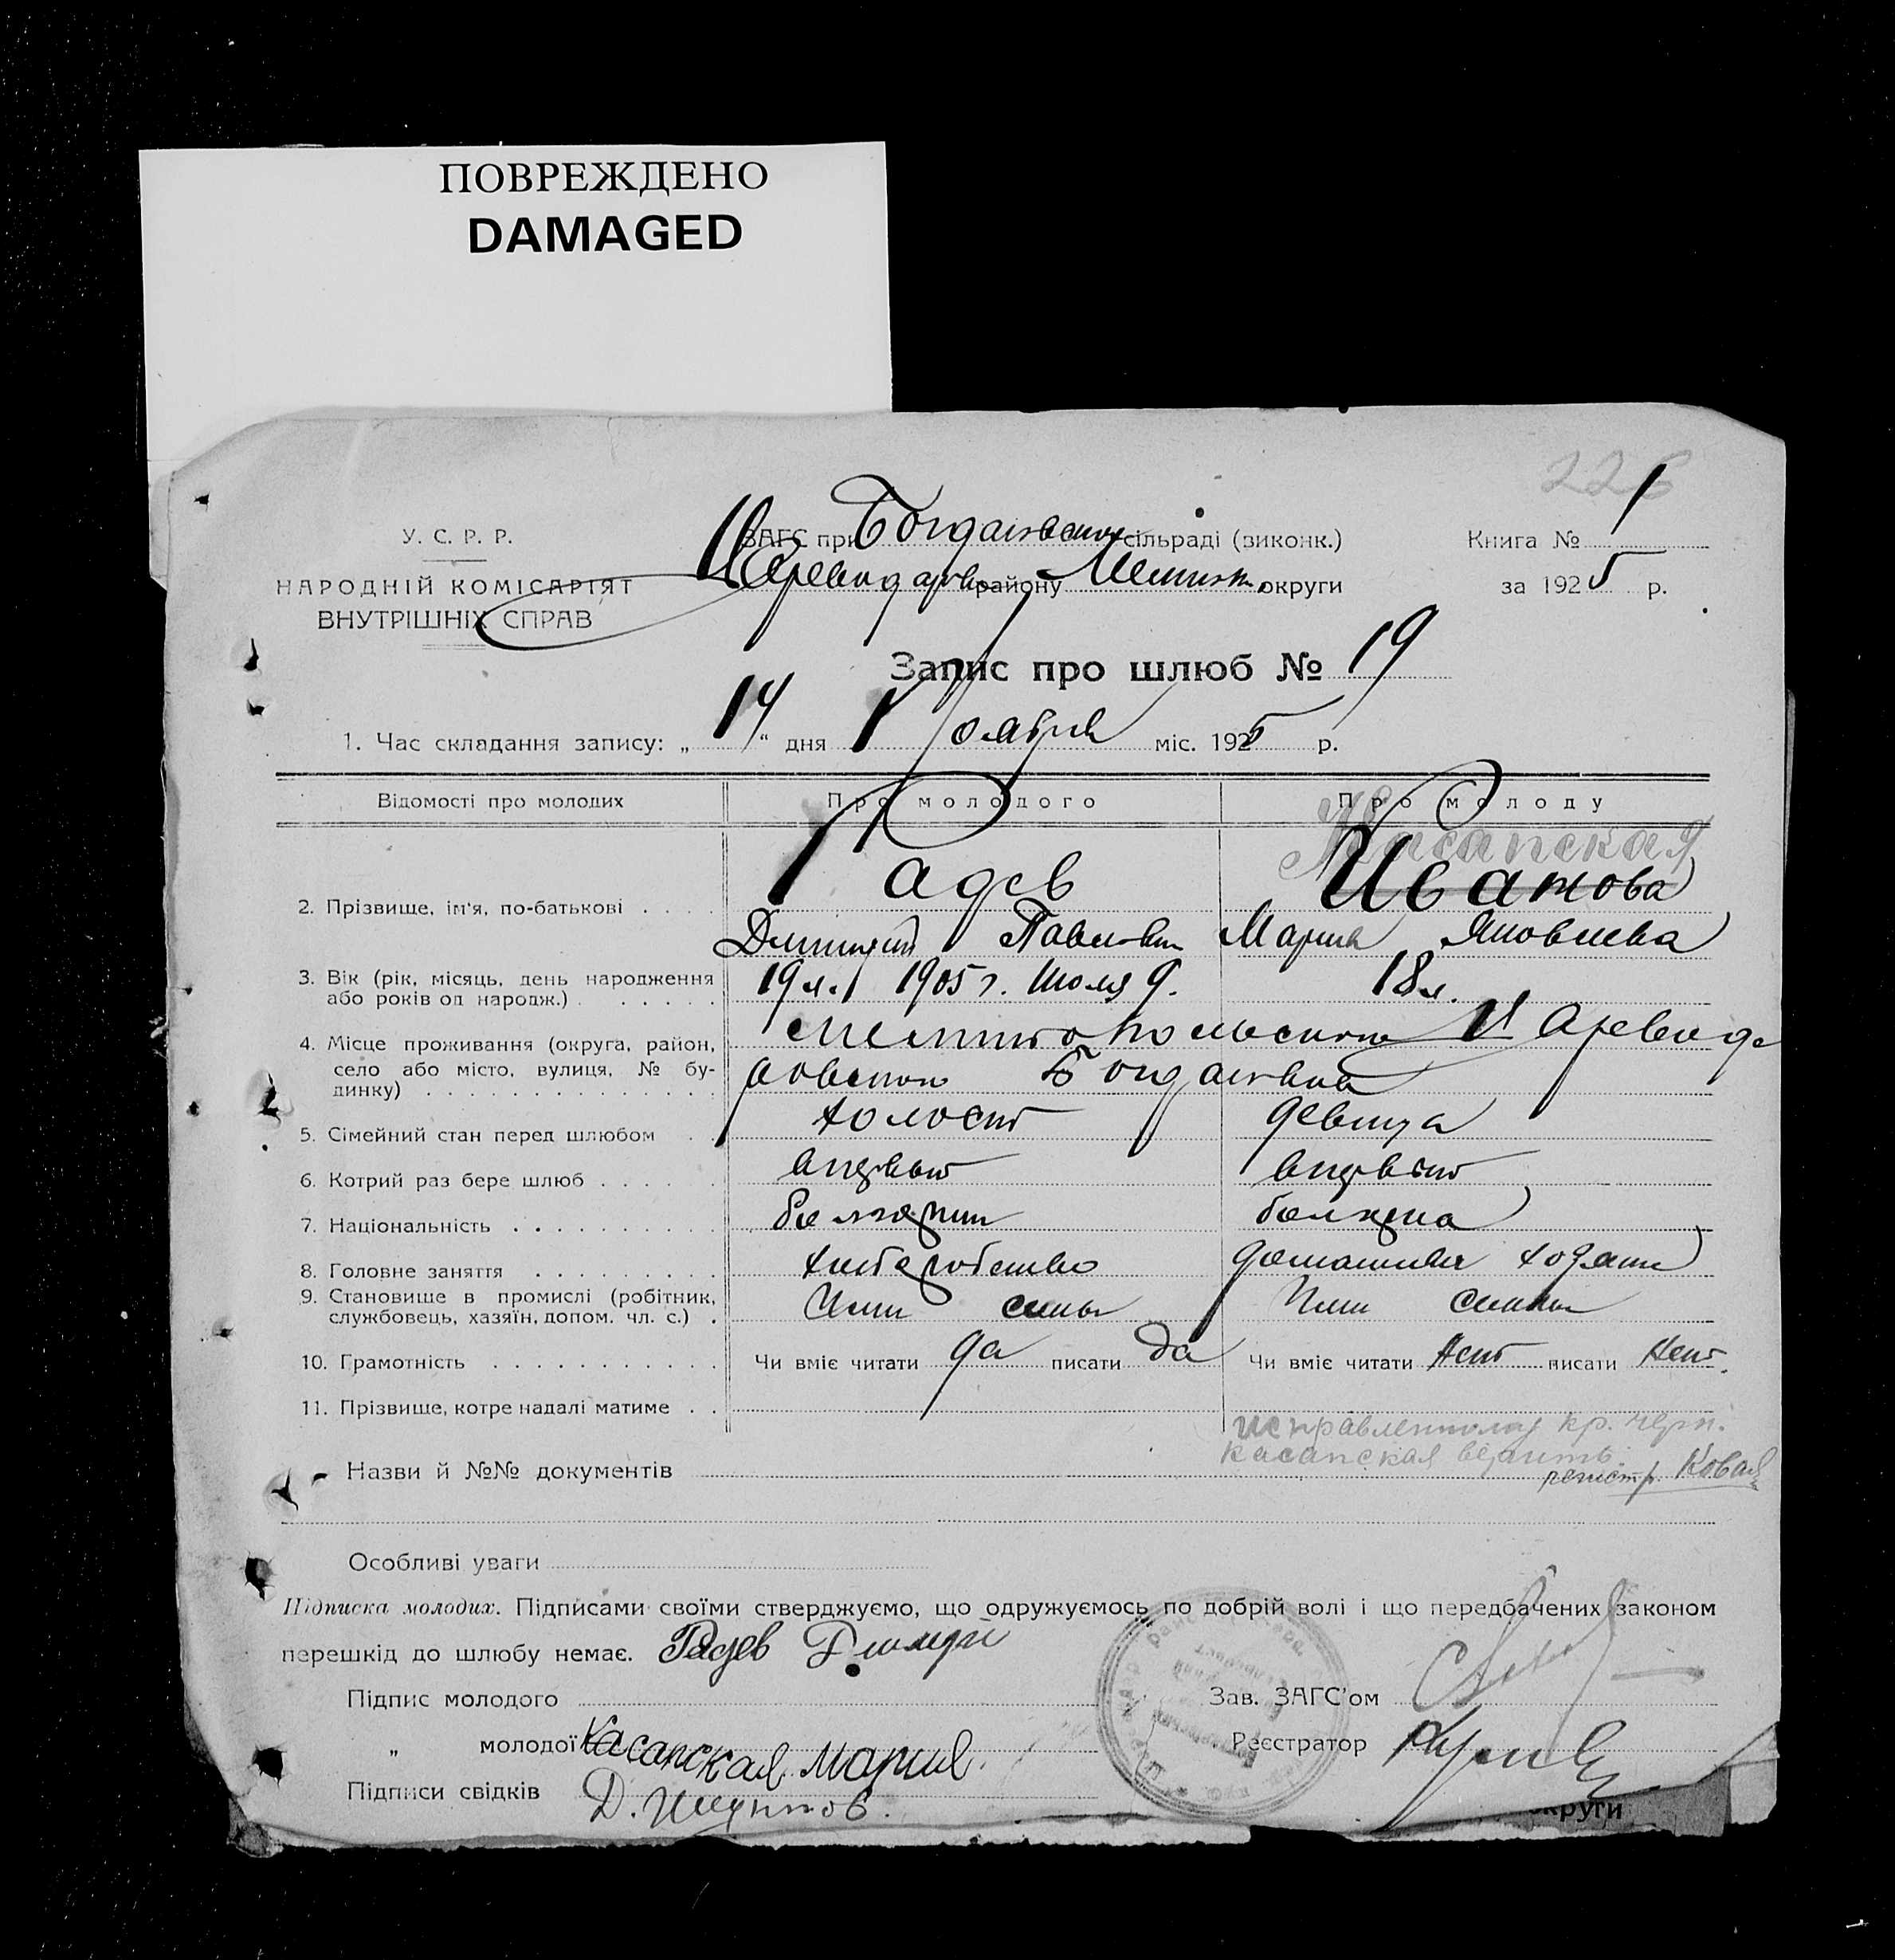 ПОВРЕЖДЕНО
DAMAGED
226
У. С. Р. Р.
НАРОДНІЙ КОМІСАРІЯТ
ВНУТРІШНІХ СПРАВ
ЗАГС при Богдановском сільраді (виконк.)
району Мелит. округи
Книга № 1
за 1925 р.
Запис про шлюб № 19
1. Час складання запису: „ 14 “ дня Ноября міс. 1925 р.
Відомості про молодих
Про молодого
Про молоду
Касапская
2. Прізвище, ім'я, по-батькові . . . . Радев Иванова
Дмитрий Павлович Мария Яковлева
3. Вік (рік, місяць, день народження або років од народж.) . . . . . . 19 л. 1905 г. Июля 9. 18 л.
4. Місце проживання (округа, район, село або місто, вулиця, № будинку) . . . Богдановка
5. Сімейний стан перед шлюбом . . холост девица
6. Котрий раз бере шлюб . . . . .
7. Національність . . . . . . . . . болгарин
8. Головне заняття . . . . . . . . . хлеборобство
9. Становище в промислі (робітник, службовець, хазяїн, допом. чл. с.) .
10. Грамотність . . . . . . . . . . . Чи вміє читати да писати да Чи вміє читати нет писати нет.
11. Прізвище, котре надалі матиме . .
кр. черн.
Касапская
Назви й №№ документів
регистр. Коваль
Особливі уваги
Підписка молодих. Підписами своїми стверджуємо, що одружуємось по добрій волі і що передбачених законом
перешкід до шлюбу немає. Радев Дмитрий
Підпис молодого
Зав. ЗАГС'ом
„ молодої Касапская Мария.
Реєстратор
Підписи свідків Д.
округи